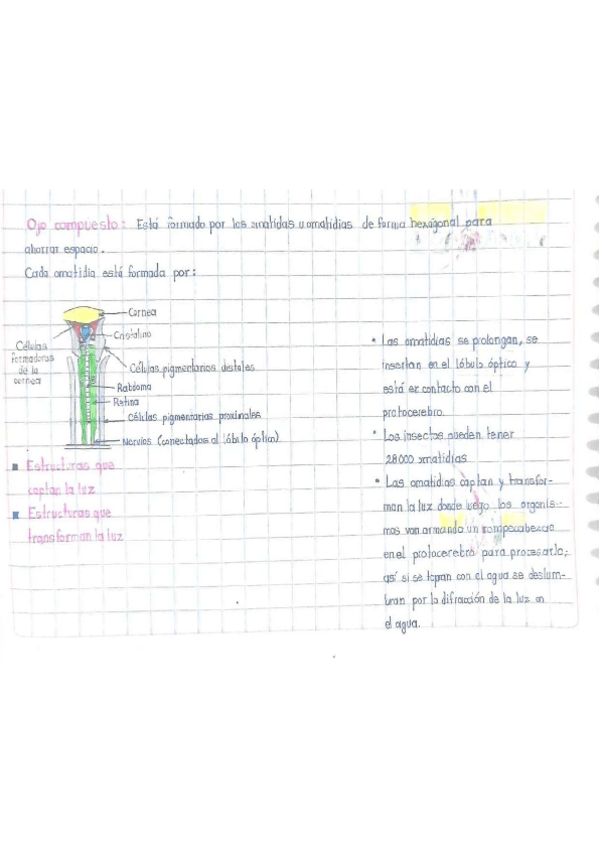 Ojo compuesto: Está formado por los omatidas u omatidias de forma hexagonal para
ahorrar espacio.
Cada omatidia está formada por:
Cornea
Cristalino
Células
formadoras
de la
cornea
Células pigmentarias distales
Rabdoma
Retina
Células pigmentarias proximales
Nervios (conectados al lóbulo óptico)
Estructuras que
captan la luz
Estructuras que
transforman la luz
• Las omatidias se prolongan, se
insertan en el lóbulo óptico y
está en contacto con el
protocerebro.
• Los insectos pueden tener
28000 omatidias
• Las omatidias captan y transfor-
man la luz donde luego los organis-
mos van armando un rompecabezas
en el protocerebro para procesarla,
así si se topan con el agua se deslum-
bran por la difracción de la luz en
el agua.